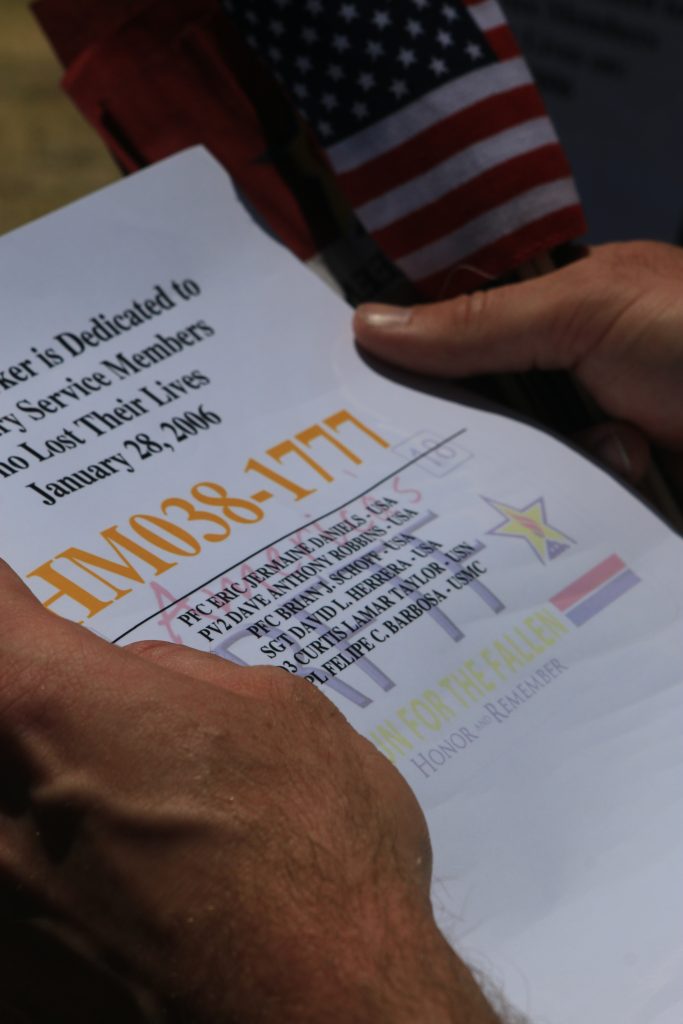 ker is Dedicated to
ry Service Members
ho Lost Their Lives
January 28, 2006
HM038-1777
10
America's
PFC ERIC JERMAINE DANIELS - USA
PV2 DAVE ANTHONY ROBBINS - USA
PFC BRIAN J. SCHOFF - USA
SGT DAVID L. HERRERA - USA
3 CURTIS LAMAR TAYLOR - USN
PL FELIPE C. BARBOSA - USMC
RFTF
UN FOR THE FALLEN
HONOR AND REMEMBER